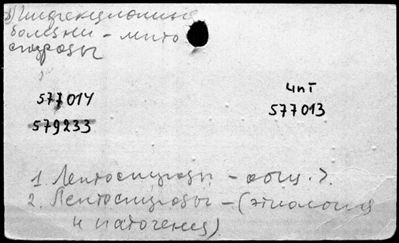 Инфекционные
болезни - лепто
спирозы
577014
579233
чпт
577013
1. Лептоспирозы - общ.
2. Лептоспирозы - (этиология
и патогенез)